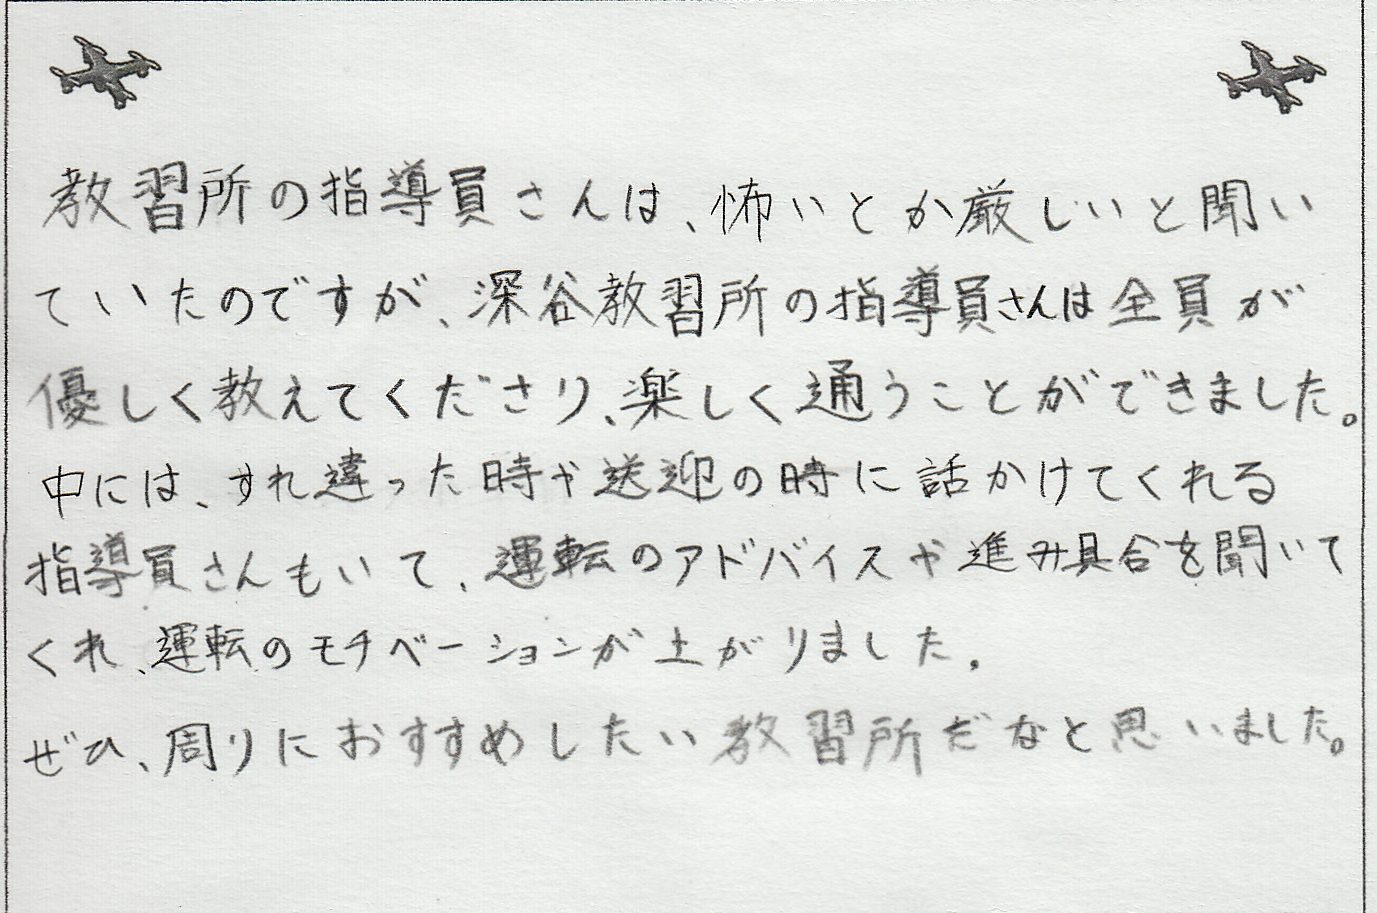 教習所の指導員さんは、怖いとか厳しいと聞い
ていたのですが、深谷教習所の指導員さんは全員が
優しく教えてくださり、楽しく通うことができました。
中には、すれ違った時や送迎の時に話かけてくれる
指導員さんもいて、運転のアドバイスや進み具合を聞いて
くれ、運転のモチベーションが上がりました。
ぜひ、周りにおすすめしたい教習所だなと思いました。